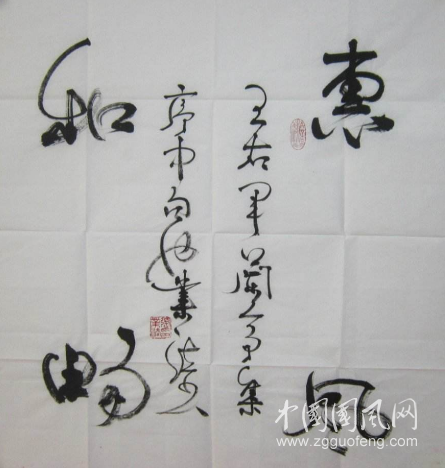 惠風
王右軍蘭亭集
序中句
和暢
中國國風网
www.zgguofeng.com